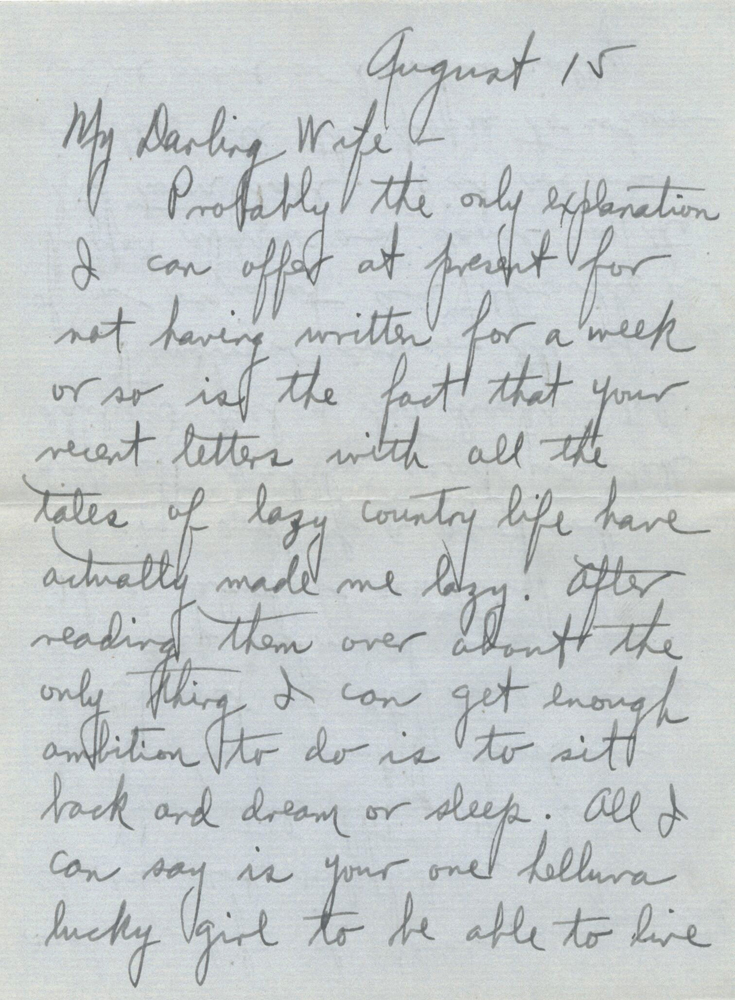 August 15
My Darling Wife -
Probably the only explanation
I can offer at present for
not having written for a week
or so is the fact that your
recent letters with all the
tales of lazy country life have
actually made me lazy. After
reading them over about the
only thing I can get enough
ambition to do is to sit
back and dream or sleep. All I
can say is your one helluva
lucky girl to be able to live